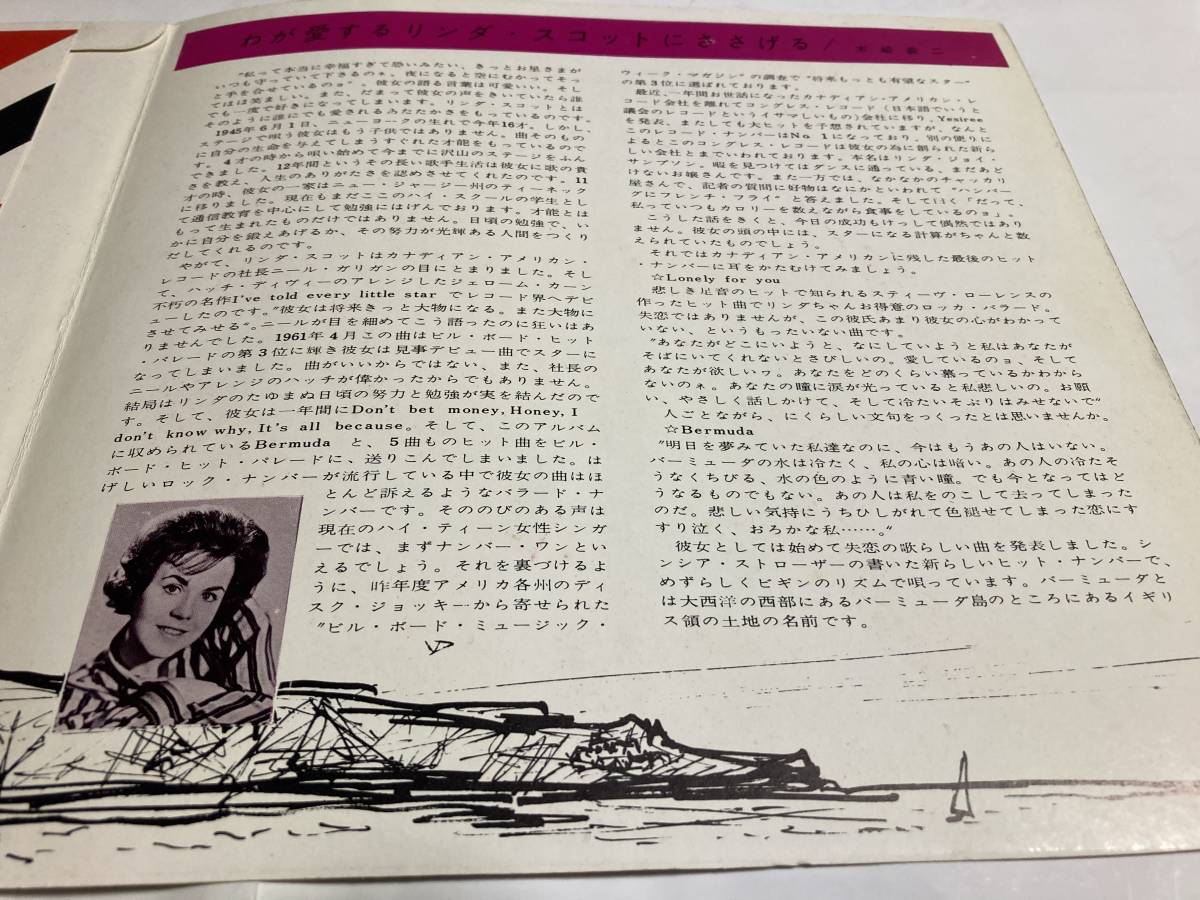 わが愛するリンダ・スコットにささげる/木崎義二
"私って本当に幸福すぎて恐いみたい、きっとお星さまが
いつも守っていて下さるのネ。夜になると空にむかってそっ
と手を合せているのョ"。彼女の語る言葉は可愛いい。そし
てほほ笑ましい。また、だまって彼女の声をきいていたら誰
でも一度で好きになってしまいます。リンダ・スコットとは
そのように誰にでも愛されるムードたかさをもっているのです。
1945年6月1日、ニューヨークの生れで今年16才。しかし、
ステージで唄う彼女はもう子供ではありません。曲そのもの
に自分の生命を与えてしまうすぐれた才能をもっているので
す。4才の時から唄い始めて今までに沢山のステージをふん
できました。12年間というその長い歌手生活は彼女に歌の貴
さを教え、人生のありがたさを認めさせてくれたのです。11
才の時、彼女の一家はニュー・ジャージー州のティーネック
に移りました。現在もまだここのハイ・スクールの学生とし
て通信教育を中心にして勉強にはげんでおります。才能とは
もって生まれたものだけではありません。日頃の勉強で、い
かに自分を鍛えあげるか、その努力が光輝ある人間をつくり
だしてくれるのです。
やがて、リンダ・スコットはカナディアン・アメリカン・
レコードの社長ニール・ガリガンの目にとまりました。そし
て、ハッチ・ディヴィーのアレンジしたジェローム・カーン
不朽の名作I've told every little star でレコード界へデビ
ューしたのです。"彼女は将来きっと大物になる。また大物に
させてみせる"。ニールが目を細めてこう語ったのに狂いはあ
りませんでした。1961年4月この曲はビル・ボード・ヒット
・パレードの第3位に輝き彼女は見事デビュー曲でスターに
なってしまいました。曲がいいからではない、また、社長の
ニールやアレンジのハッチが偉かったからでもありません。
結局はリンダのたゆまぬ日頃の努力と勉強が実を結んだので
す。そして、彼女は一年間にDon't bet money, Honey, I
don't know why, It's all because。そして、このアルバム
に収められているBermuda と、5曲ものヒット曲をビル・
ボード・ヒット・パレードに、送りこんでしまいました。は
げしいロック・ナンバーが流行している中で彼女の曲はほ
とんど訴えるようなバラード・ナ
ンバーです。そののびのある声は
現在のハイ・ティーン女性シンガ
ーでは、まずナンバー・ワンとい
えるでしょう。それを裏づけるよ
うに、昨年度アメリカ各州のディ
スク・ジョッキーから寄せられた
"ビル・ボード・ミュージック・
ウィーク・マガジン"の調査で"将来もっとも有望なスター"
の第3位に選ばれております。
最近、一年間お世話になったカナディアン・アメリカン・レ
コード会社を離れてコングレス・レコード(日本語でいうと
議会のレコードというイサマしいもの)会社に移り、Yesiree
を発表、またしても大ヒットを予想されていますが、なんと
このレコード・ナンバーはNo 1になっており、別の便りに
よるとこのコングレス・レコードは彼女の為に創られた新ら
しい会社とまでいわれております。本名はリンダ・ジョイ・
サンプソン。暇を見つけてはダンスに通っている、まだあど
けないお嬢さんです。また一方では、なかなかのチャッカリ
屋さんで、記者の質問に好物はなにかといわれて"ハンバー
グにフレンチ・フライ"と答えました。そして曰く「だって、
私っていつもカロリーを数えながら食事をしているのョ」。
こうした話をきくと、今日の成功もけっして偶然ではあり
ません。彼女の頭の中には、スターになる計算がちゃんと数
えられていたものでしょう。
それではカナディアン・アメリカンに残した最後のヒット
・ナンバーに耳をかたむけてみましょう。
☆Lonely for you
悲しき足音のヒットで知られるスティーヴ・ローレンスの
作ったヒット曲でリンダちゃんお得意のロッカ・バラード。
失恋ではありませんが、この彼氏あまり彼女の心がわかって
いない、というもったいない曲です。
"あなたがどこにいようと、なにしていようと私はあなたが
そばにいてくれないとさびしいの。愛しているのョ、そして
あなたが欲しいヮ。あなたをどのくらい慕っているかわから
ないのネ。あなたの瞳に涙が光っていると私悲しいの。お願
い、やさしく話しかけて、そして冷たいそぶりはみせないで"
人ごとながら、にくらしい文句をつくったとは思いませんか。
☆Bermuda
"明日を夢みていた私達なのに、今はもうあの人はいない。
バーミューダの水は冷たく、私の心は暗い。あの人の冷たそ
うなくちびる、水の色のように青い瞳。でも今となってはど
うなるものでもない。あの人は私をのこして去ってしまった
のだ。悲しい気持にうちひしがれて色褪せてしまった恋にす
すり泣く、おろかな私……。"
彼女としては始めて失恋の歌らしい曲を発表しました。シ
ンシア・ストローザーの書いた新らしいヒット・ナンバーで、
めずらしくビギンのリズムで唄っています。バーミューダと
は大西洋の西部にあるバーミューダ島のところにあるイギリ
ス領の土地の名前です。